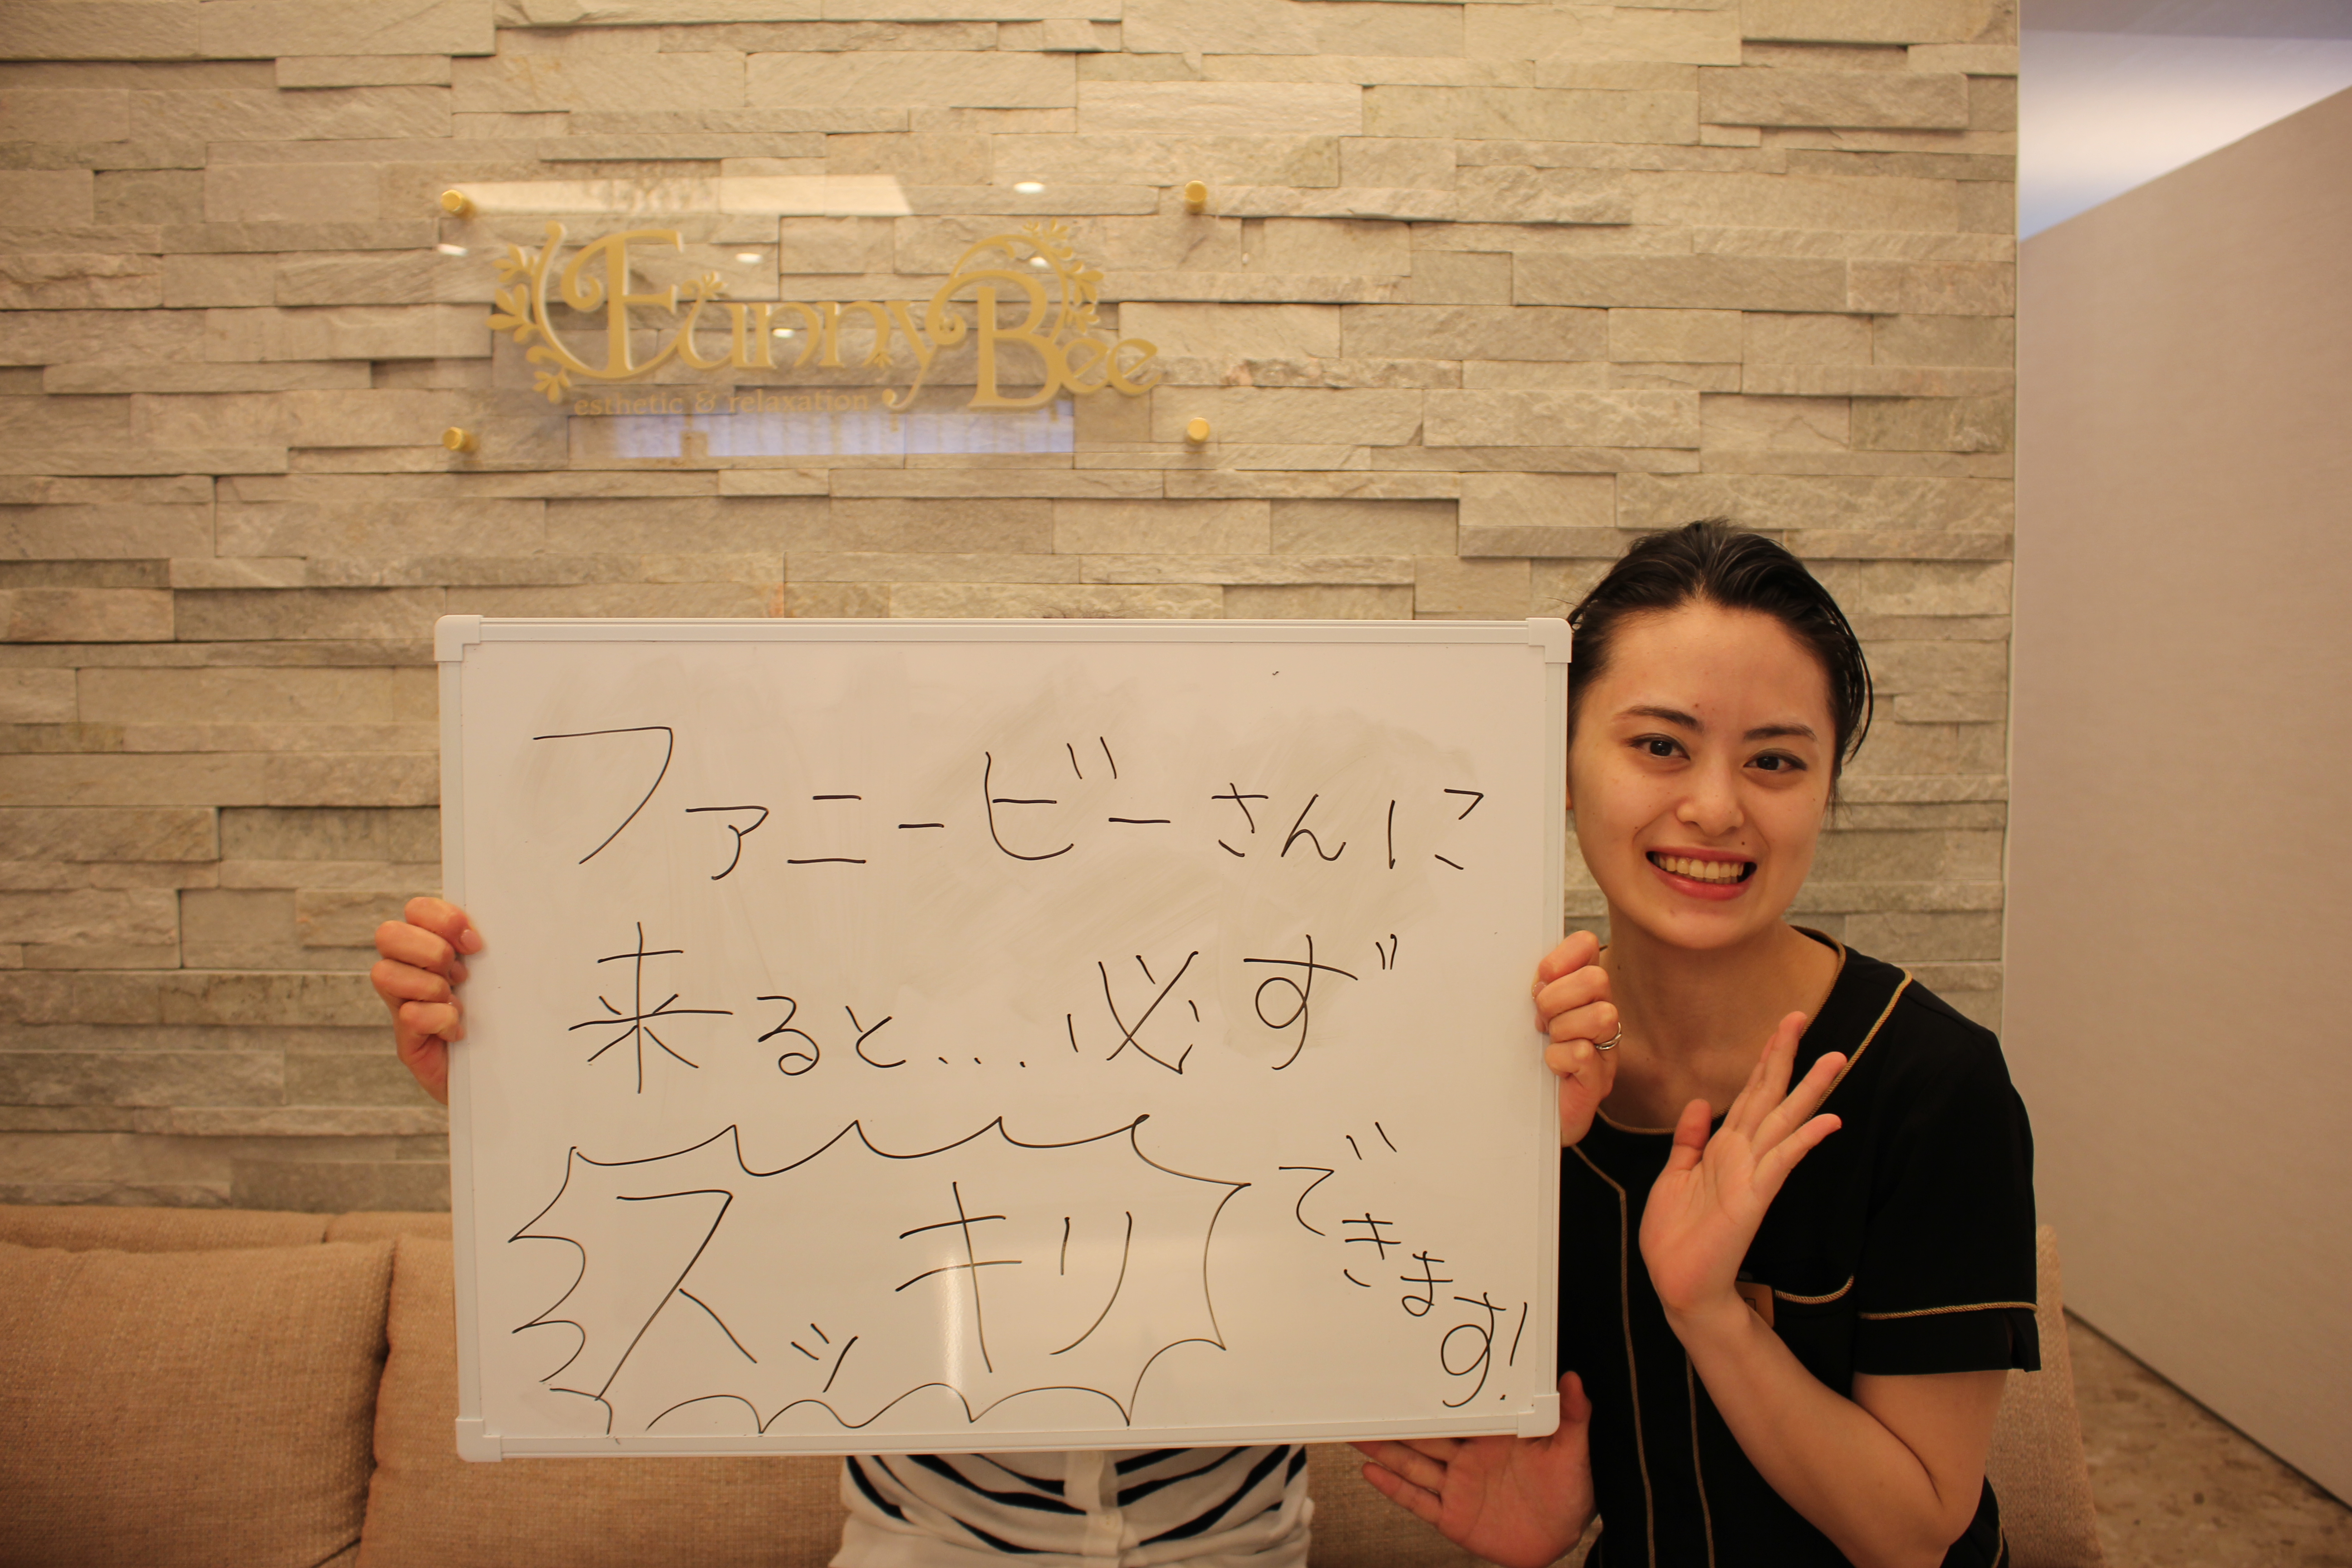 FunnyBee
esthetic & relaxation
ファニービーさんに
来ると...必ず
スッキリできます!